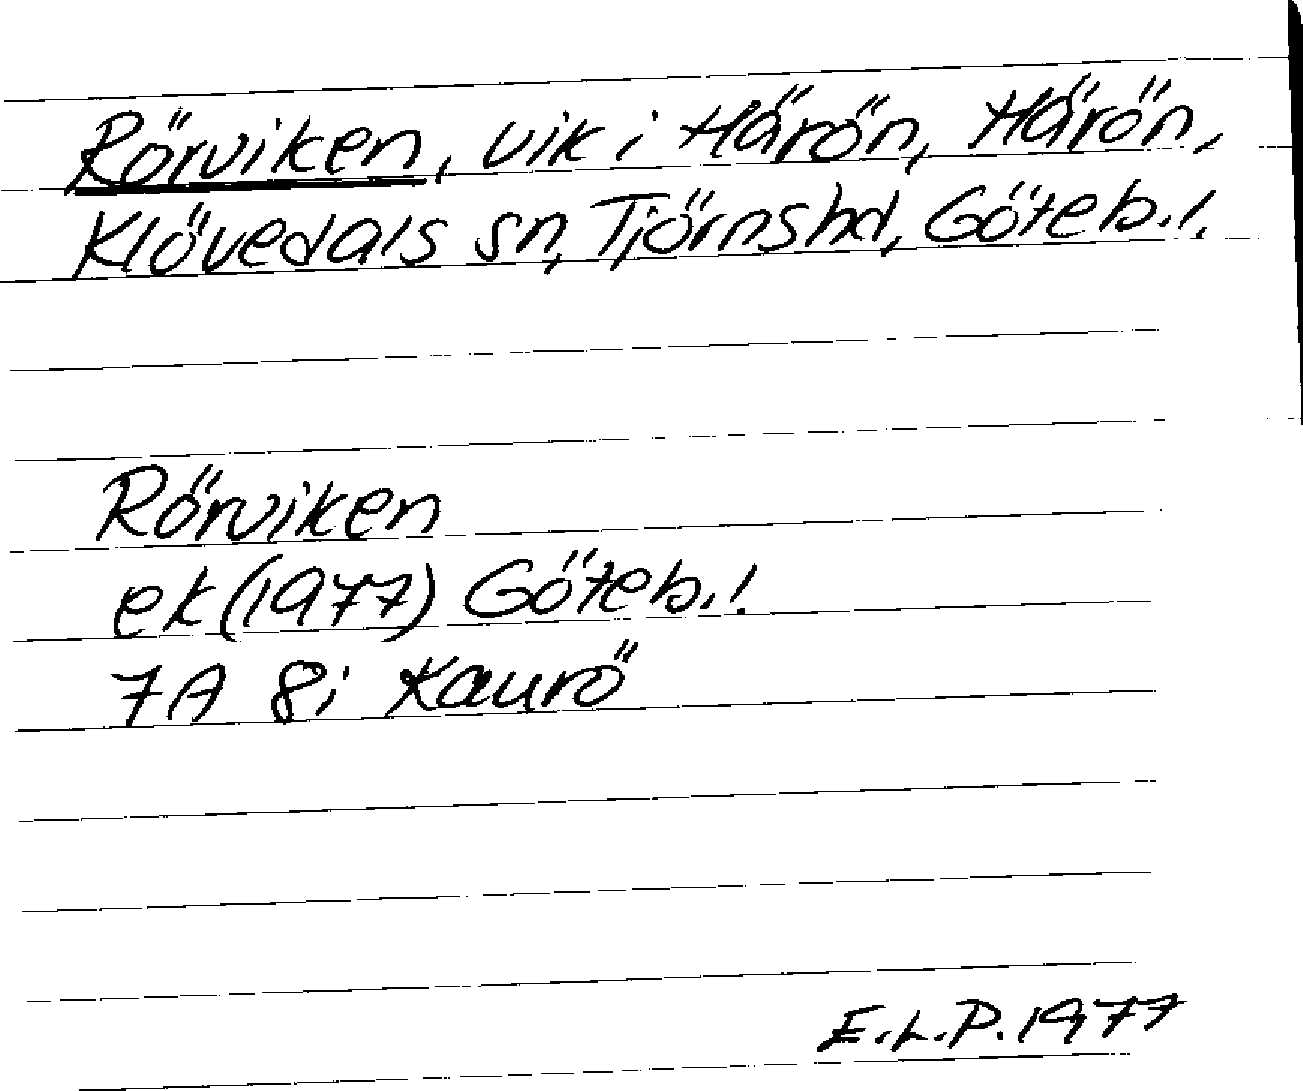 Rörviken, vik i Härön, Härön,
Klövedals sn, Tjörns hd, Göteb. l.
Rörviken
ek (1977) Göteb. l.
7A 8i Kaurö
E.L.P. 1977